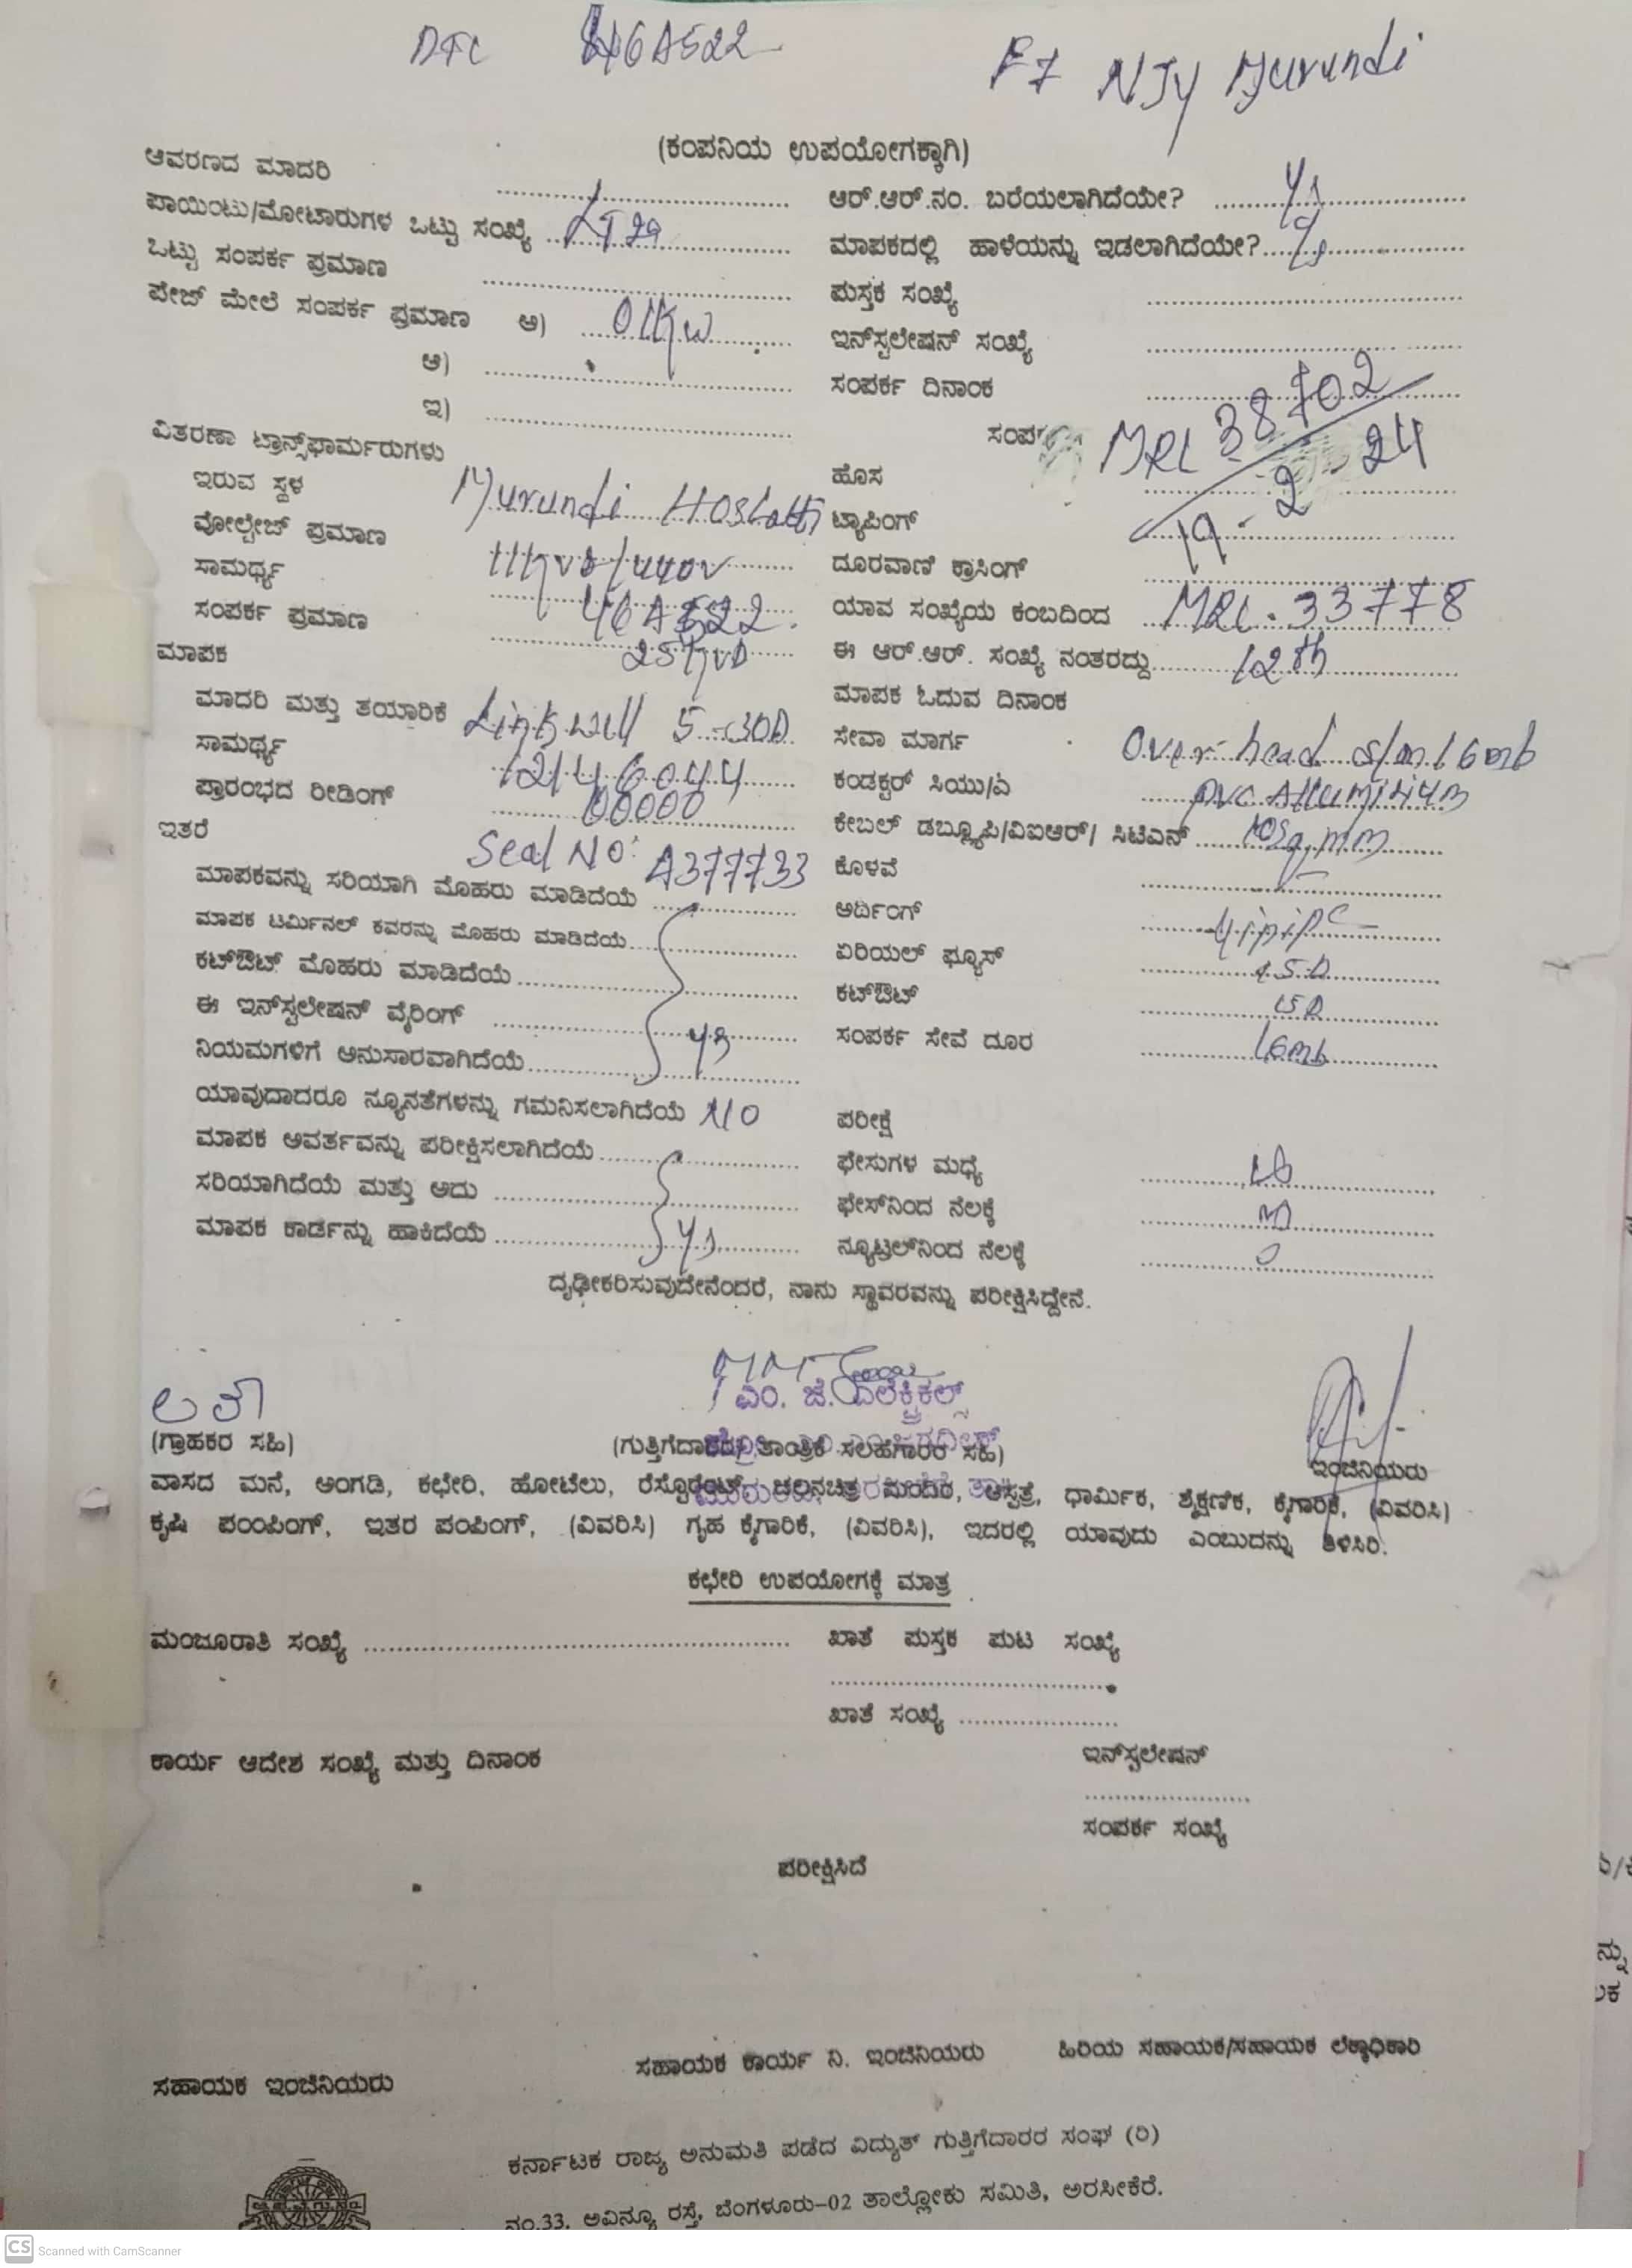 DTC 46A522
F7 NJY Murundi
(ಕಂಪನಿಯ ಉಪಯೋಗಕ್ಕಾಗಿ)
ಆವರಣದ ಮಾದರಿ ....................
ಪಾಯಿಂಟು/ಮೋಟಾರುಗಳ ಒಟ್ಟು ಸಂಖ್ಯೆ LT2a
ಒಟ್ಟು ಸಂಪರ್ಕ ಪ್ರಮಾಣ ....................
ಪೇಜ್ ಮೇಲೆ ಸಂಪರ್ಕ ಪ್ರಮಾಣ ಅ) 01Kw
ಆ) ....................
ಇ) ....................
ವಿತರಣಾ ಟ್ರಾನ್ಸ್‌ಫಾರ್ಮರುಗಳು
ಇರುವ ಸ್ಥಳ Murundi Hoshatti
ವೋಲ್ಟೇಜ್ ಪ್ರಮಾಣ
ಸಾಮರ್ಥ್ಯ 46A522
ಸಂಪರ್ಕ ಪ್ರಮಾಣ 25Kva
ಮಾಪಕ
ಮಾದರಿ ಮತ್ತು ತಯಾರಿಕೆ Linkwell 5-30A
ಸಾಮರ್ಥ್ಯ 12146044
ಪ್ರಾರಂಭದ ರೀಡಿಂಗ್ 00000
ಇತರೆ Seal No: A377733
ಮಾಪಕವನ್ನು ಸರಿಯಾಗಿ ಮೊಹರು ಮಾಡಿದೆಯೆ ....................
ಮಾಪಕ ಟರ್ಮಿನಲ್ ಕವರನ್ನು ಮೊಹರು ಮಾಡಿದೆಯೆ ....................
ಕಟ್‌ಔಟ್ ಮೊಹರು ಮಾಡಿದೆಯೆ ....................
ಈ ಇನ್‌ಸ್ಟಲೇಷನ್ ವೈರಿಂಗ್ .................... ys
ನಿಯಮಗಳಿಗೆ ಅನುಸಾರವಾಗಿದೆಯೆ ....................
ಯಾವುದಾದರೂ ನ್ಯೂನತೆಗಳನ್ನು ಗಮನಿಸಲಾಗಿದೆಯೆ NO
ಮಾಪಕ ಅವರ್ತವನ್ನು ಪರೀಕ್ಷಿಸಲಾಗಿದೆಯೆ ....................
ಸರಿಯಾಗಿದೆಯೆ ಮತ್ತು ಅದು ....................
ಮಾಪಕ ಕಾರ್ಡನ್ನು ಹಾಕಿದೆಯೆ .................... ys
ಆರ್.ಆರ್.ನಂ. ಬರೆಯಲಾಗಿದೆಯೇ? ys
ಮಾಪಕದಲ್ಲಿ ಹಾಳೆಯನ್ನು ಇಡಲಾಗಿದೆಯೇ? ys
ಪುಸ್ತಕ ಸಂಖ್ಯೆ ....................
ಇನ್‌ಸ್ಟಲೇಷನ್ ಸಂಖ್ಯೆ ....................
ಸಂಪರ್ಕ ದಿನಾಂಕ ....................
MRL 38702
ಹೊಸ
ಟ್ಯಾಪಿಂಗ್ 19-2-24
ದೂರವಾಣಿ ಕ್ರಾಸಿಂಗ್ ....................
ಯಾವ ಸಂಖ್ಯೆಯ ಕಂಬದಿಂದ MRL.33778
ಈ ಆರ್.ಆರ್. ಸಂಖ್ಯೆ ನಂತರದ್ದು 12th
ಮಾಪಕ ಓದುವ ದಿನಾಂಕ
ಸೇವಾ ಮಾರ್ಗ Over head
ಕಂಡಕ್ಟರ್ ಸಿಯು/ಏ PVC Alluminium
ಕೇಬಲ್ ಡಬ್ಲ್ಯೂಪಿ/ವಿಐಆರ್/ ಸಿಟಿಎನ್ 10Sq.mm
ಕೊಳವೆ ....................
ಅರ್ದಿಂಗ್
ಏರಿಯಲ್ ಫ್ಯೂಸ್
ಕಟ್‌ಔಟ್
ಸಂಪರ್ಕ ಸೇವೆ ದೂರ
ಪರೀಕ್ಷೆ
ಫೇಸುಗಳ ಮಧ್ಯೆ
ಫೇಸ್‌ನಿಂದ ನೆಲಕ್ಕೆ
ನ್ಯೂಟ್ರಲ್‌ನಿಂದ ನೆಲಕ್ಕೆ 0
ದೃಢೀಕರಿಸುವುದೇನೆಂದರೆ, ನಾನು ಸ್ಥಾವರವನ್ನು ಪರೀಕ್ಷಿಸಿದ್ದೇನೆ.
ಲತಾ
ಎಂ. ಜೆ. ಎಲೆಕ್ಟ್ರಿಕಲ್ಸ್
(ಗ್ರಾಹಕರ ಸಹಿ) (ಗುತ್ತಿಗೆದಾರರ/ತಾಂತ್ರಿಕ ಸಲಹೆಗಾರರ ಸಹಿ) ಇಂಜಿನಿಯರು
ವಾಸದ ಮನೆ, ಅಂಗಡಿ, ಕಛೇರಿ, ಹೋಟೆಲು, ರೆಸ್ಟೊರೆಂಟ್, ಚಲನಚಿತ್ರ ಮಂದಿರ, ಆಸ್ಪತ್ರೆ, ಧಾರ್ಮಿಕ, ಶೈಕ್ಷಣಿಕ, ಕೈಗಾರಿಕೆ, (ವಿವರಿಸಿ)
ಕೃಷಿ ಪಂಂಪಿಂಗ್, ಇತರ ಪಂಪಿಂಗ್, (ವಿವರಿಸಿ) ಗೃಹ ಕೈಗಾರಿಕೆ, (ವಿವರಿಸಿ), ಇದರಲ್ಲಿ ಯಾವುದು ಎಂಬುದನ್ನು ತಿಳಿಸಿರಿ.
ಕಛೇರಿ ಉಪಯೋಗಕ್ಕೆ ಮಾತ್ರ
ಮಂಜೂರಾತಿ ಸಂಖ್ಯೆ .................... ಖಾತೆ ಪುಸ್ತಕ ಪುಟ ಸಂಖ್ಯೆ
....................
ಖಾತೆ ಸಂಖ್ಯೆ ....................
ಕಾರ್ಯ ಆದೇಶ ಸಂಖ್ಯೆ ಮತ್ತು ದಿನಾಂಕ ಇನ್‌ಸ್ಟಲೇಷನ್
....................
ಸಂಪರ್ಕ ಸಂಖ್ಯೆ
ಪರೀಕ್ಷಿಸಿದೆ
ಸಹಾಯಕ ಇಂಜಿನಿಯರು ಸಹಾಯಕ ಕಾರ್ಯ ನಿ. ಇಂಜಿನಿಯರು ಹಿರಿಯ ಸಹಾಯಕ/ಸಹಾಯಕ ಲೆಕ್ಕಾಧಿಕಾರಿ
ಕರ್ನಾಟಕ ರಾಜ್ಯ ಅನುಮತಿ ಪಡೆದ ವಿದ್ಯುತ್ ಗುತ್ತಿಗೆದಾರರ ಸಂಘ (ರಿ)
ನಂ.33, ಅವಿನ್ಯೂ ರಸ್ತೆ, ಬೆಂಗಳೂರು-02 ತಾಲ್ಲೋಕು ಸಮಿತಿ, ಅರಸೀಕೆರೆ.
CS Scanned with CamScanner